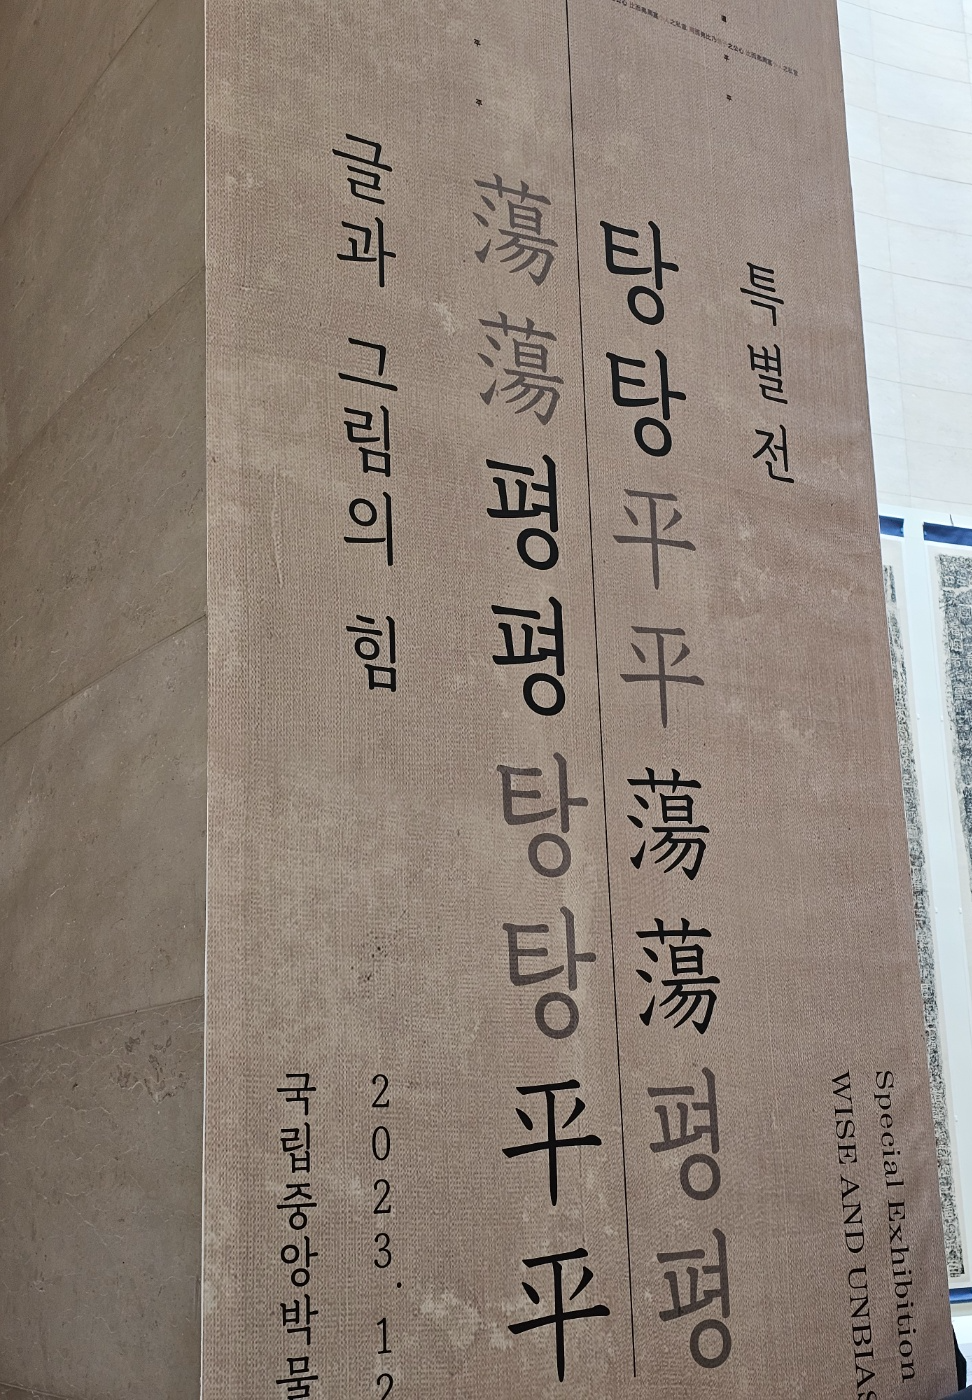 특별전
탕탕平平蕩蕩평평
蕩蕩평평탕탕平平
글과 그림의 힘
2023. 12
국립중앙박물
Special Exhibition
WISE AND UNBIAS